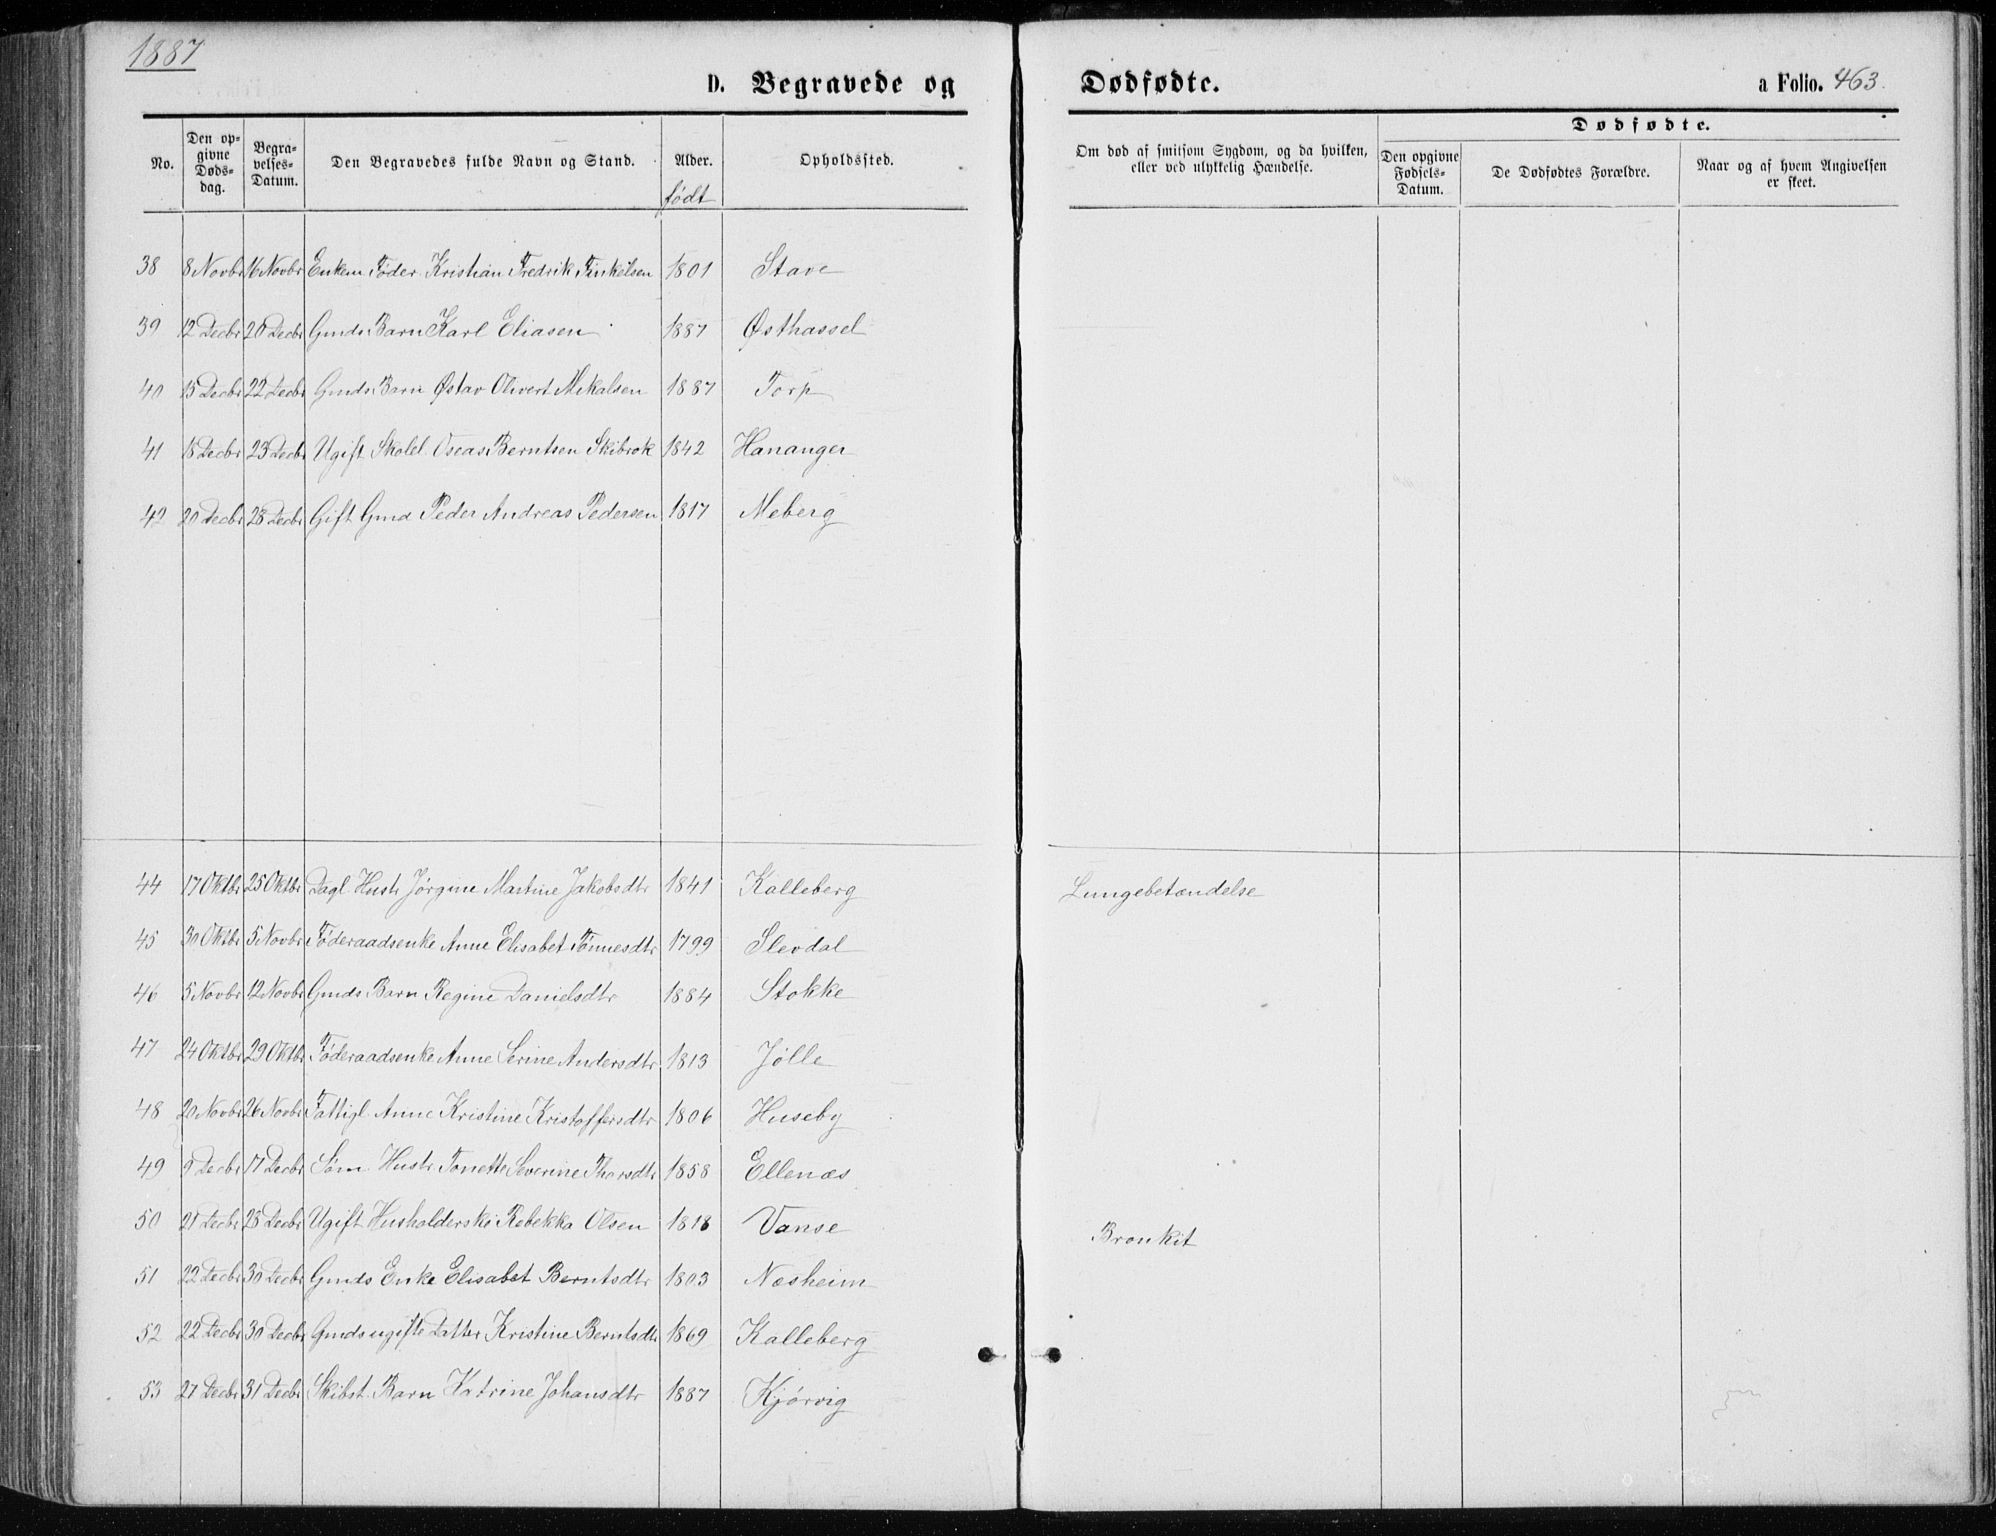 1887
D. Begravede og Dødfødte. a Folio. 463.
No. Den opgivne Dødsdag. Begravelses-Datum. Den Begravedes fulde Navn og Stand. Alder. født Opholdssted. Om død af smitsom Sygdom, og da hvilken, eller ved ulykkelig Hændelse. Dødfødte. Den opgivne Fødsels-Datum. De Dødfødtes Forældre. Naar og af hvem Angivelsen er skeet.
38 8 Novbr 16 Novbr Enkem Føder. Kristian Fredrik Finkelsen 1801 Stave
39 12 Decbr 20 Decbr Gmds Barn Karl Eliasen 1887 Østhassel
40 15 Decbr 22 Decbr Gmds Barn Østav Olivert Mikalsen 1887 Torp
41 18 Decbr 23 Decbr Ugift Skolel. Oseas Berntsen Skibrok 1842 Hananger
42 20 Decbr 28 Decbr Gift Gmd Peder Andreas Pedersen 1817 Meberg
44 17 Oktbr 25 Oktbr Dagl. Hustr Jørgine Martine Jakobsdtr 1841 Kalleberg Lungebetændelse
45 30 Oktbr 5 Novbr Føderaadsenke Anne Elisabet Tønnesdtr 1799 Slevdal
46 5 Novbr 12 Novbr Gmds Barn Regine Danielsdtr 1884 Stokke
47 24 Oktbr 29 Oktbr Føderaadsenke Anne Serine Andersdtr 1813 Jølle
48 20 Novbr 26 Novbr Fattigl. Anne Kristine Kristoffersdtr 1806 Huseby
49 9 Decbr 17 Decbr Søm. Hustr. Tonette Severine Thorsdtr 1858 Ellenæs
50 21 Decbr 23 Decbr Ugift Husholderske Rebekka Olsen 1818 Vanse Bronkit
51 22 Decbr 30 Decbr Gmds Enke Elisabet Berntsdtr 1803 Næsheim
52 22 Decbr 30 Decbr Gmds ugifte Datter Kristine Berntsdtr 1869 Kalleberg
53 27 Decbr 31 Decbr Skibst. Barn Katrine Johansdtr 1887 Kjørvig